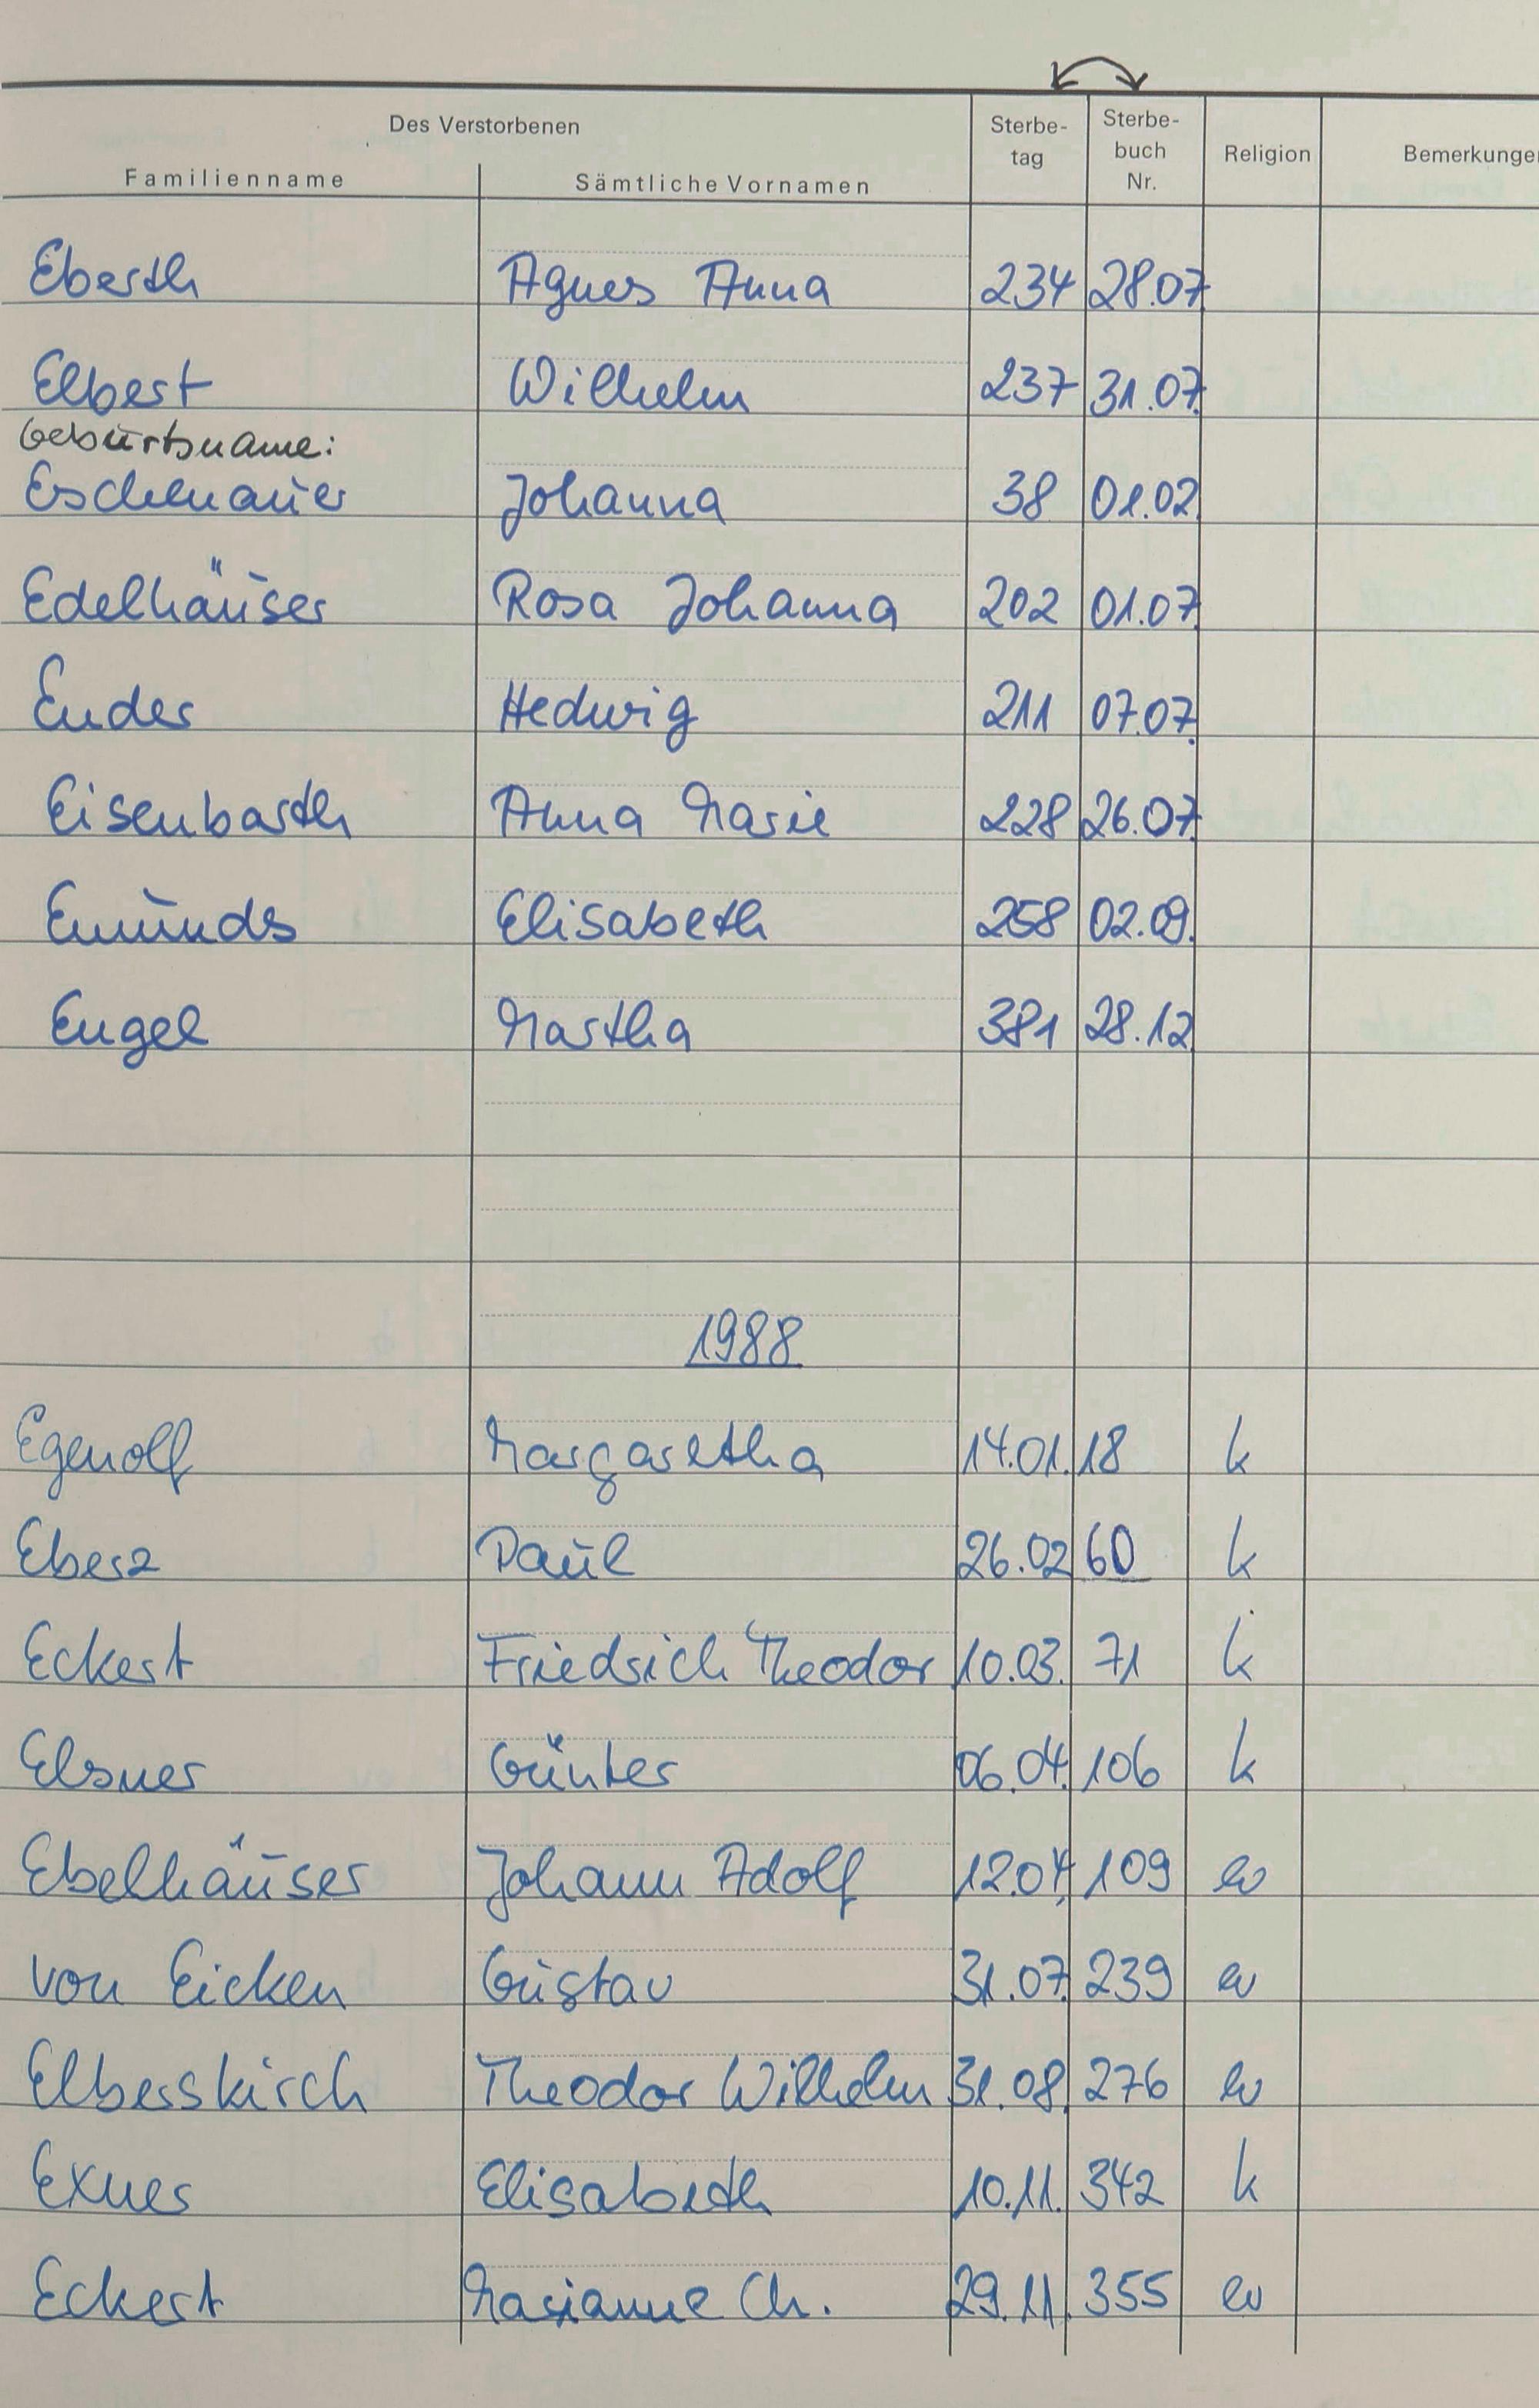 Des Verstorbenen
Familienname Sämtliche Vornamen Sterbe-tag Sterbe-buch Nr. Religion Bemerkungen
Eberth Agnes Anna 234 28.07
Elbert Wilhelm 237 31.07.
Geburtsname:
Eschenauer Johanna 38 01.02.
Edelhäuser Rosa Johanna 202 01.07.
Ender Hedwig 211 07.07.
Eisenbarth Anna Marie 228 26.07.
Emunds Elisabeth 258 02.09.
Engel Martha 381 28.12.
1988
Egenolf Margaretha 14.01. 18 k
Eberz Paul 26.02 60 k
Eckert Friedrich Theodor 10.03. 71 k
Elsner Günter 06.04. 106 k
Ebelhäuser Johann Adolf 12.04. 109 ev
von Eicken Gustav 31.07. 239 ev
Elberskirch Theodor Wilhelm 31.08. 276 ev
Exner Elisabeth 10.11. 342 k
Eckert Marianne Ch. 29.11. 355 ev